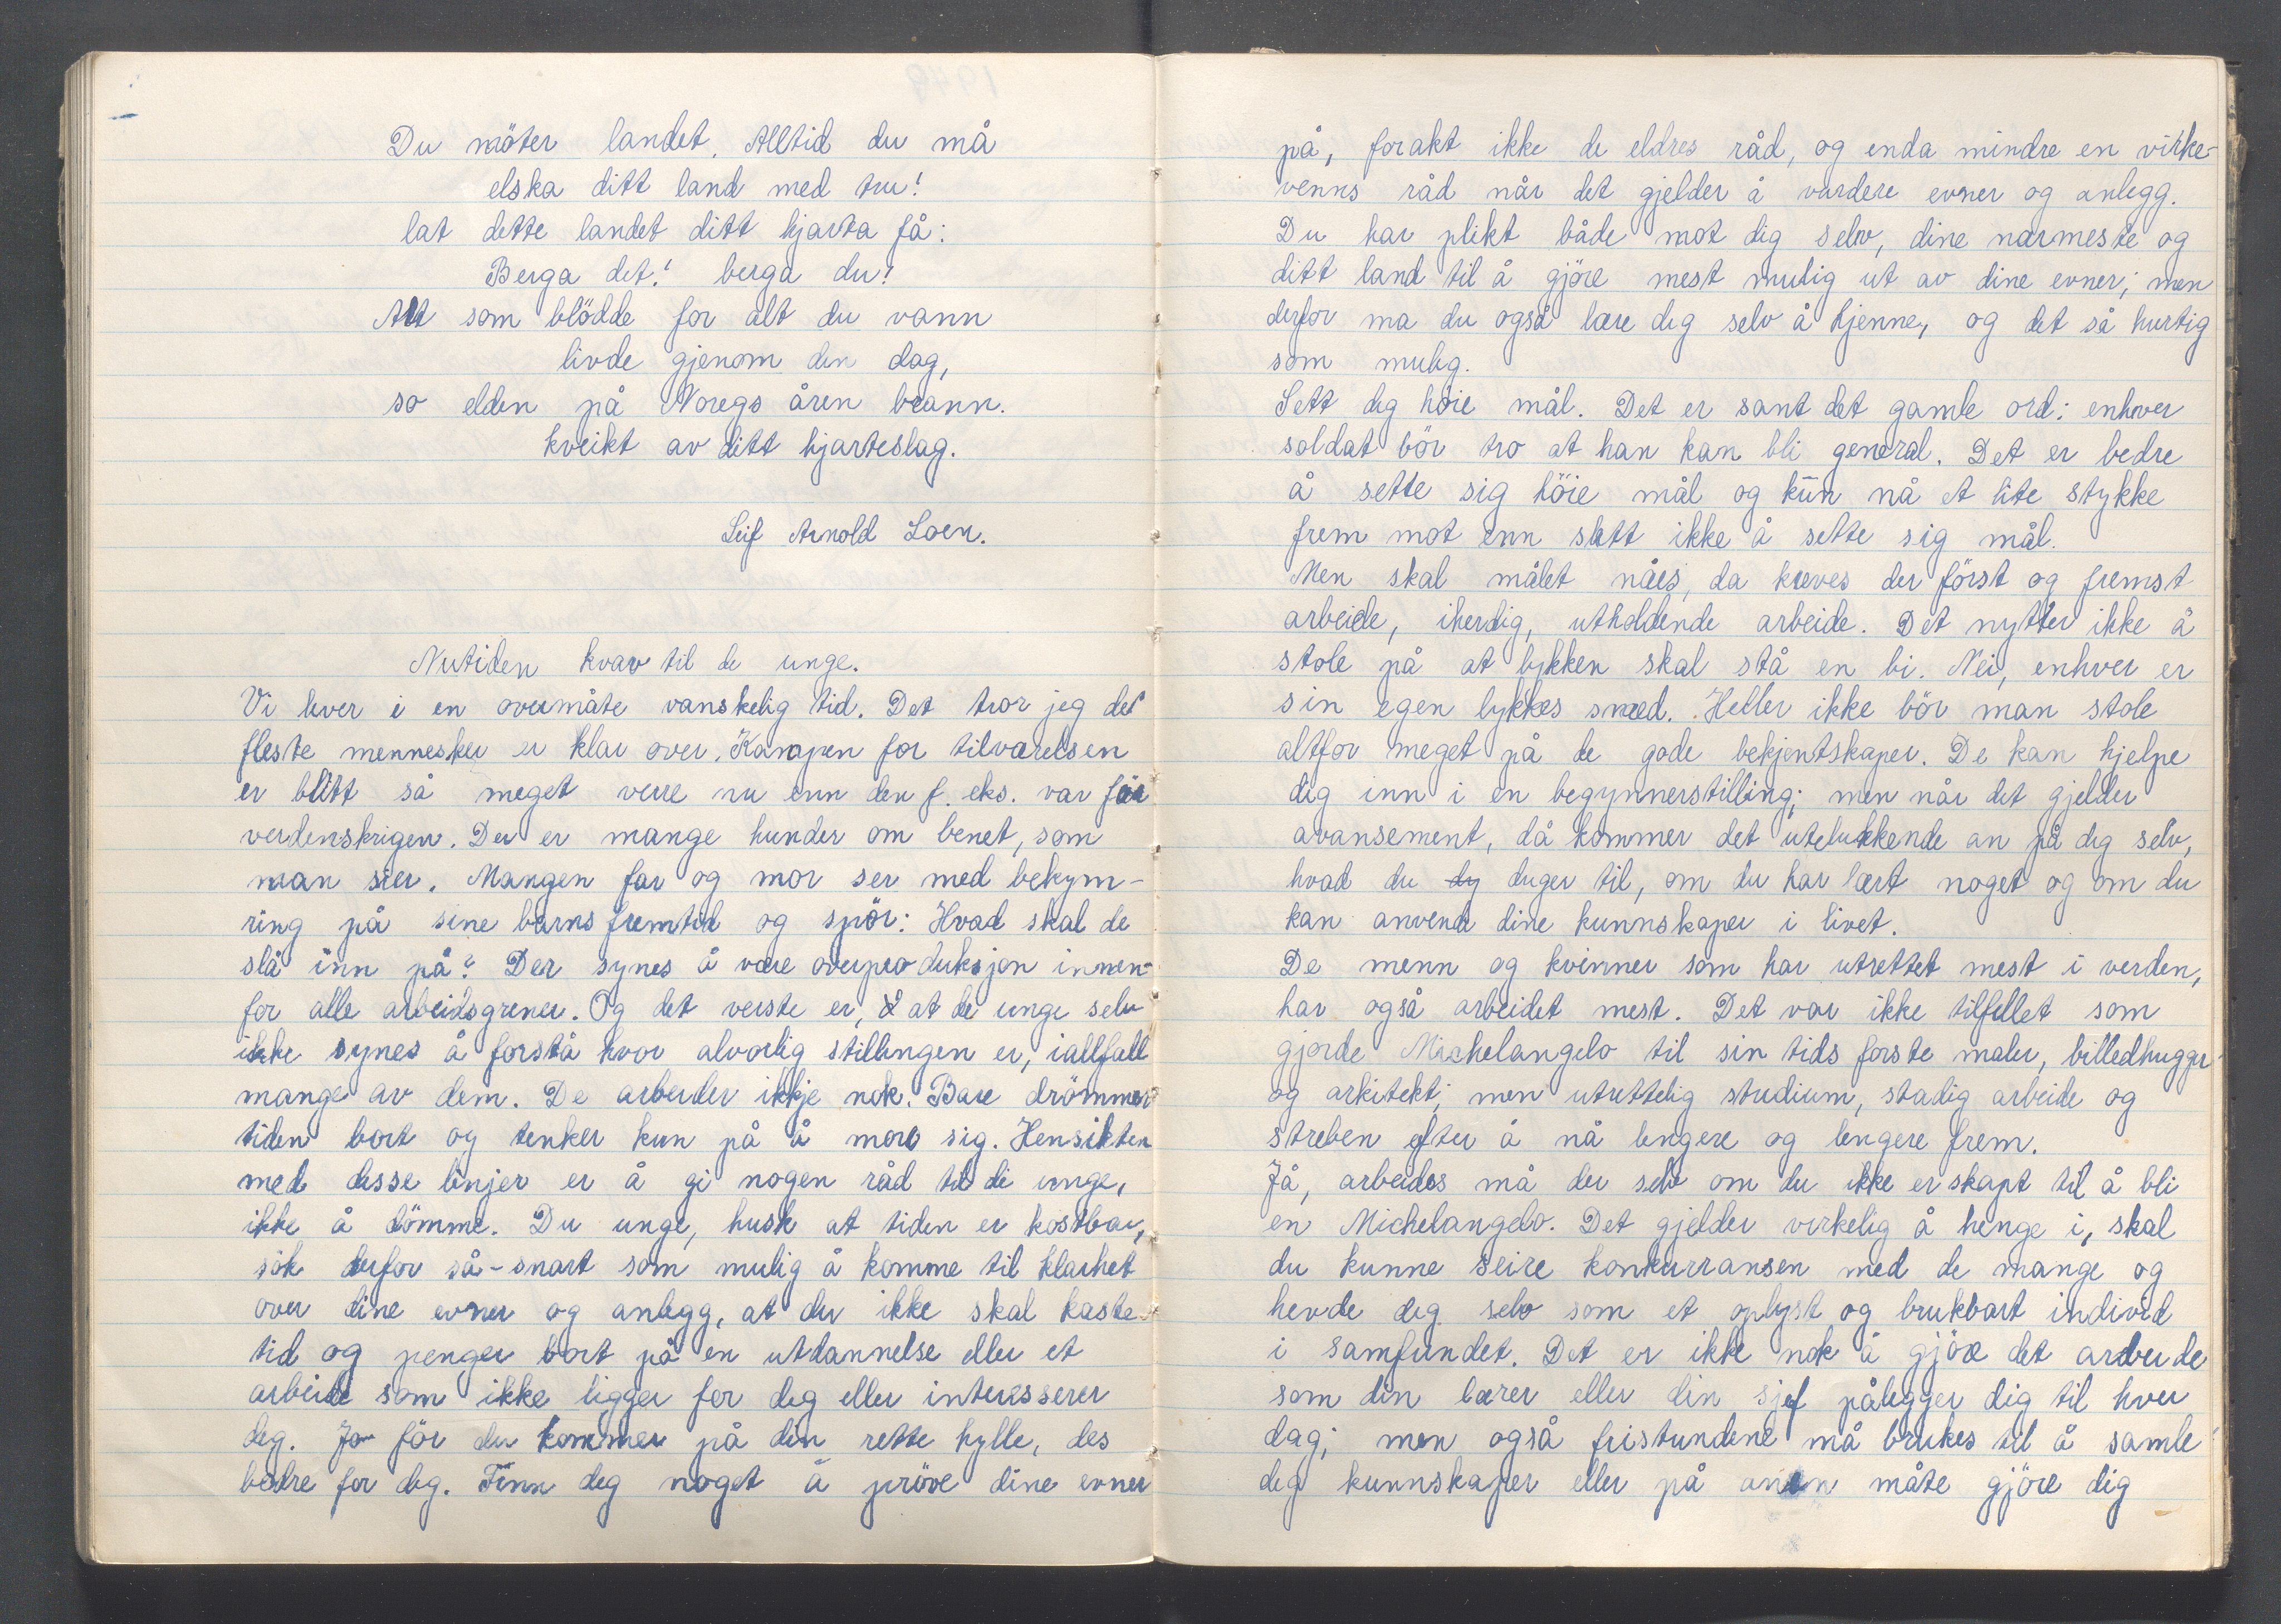 Du möter landet. Alltid du må
elska ditt land med tru!
lat dette landet ditt hjarta få:
Berga det! berga du!
Alt som blödde for alt du vann
livde gjenom den dag,
so elden på Noregs åren brann.
kveikt av ditt hjarteslag.
Leif Arnold Loen.
Nutiden krav til de unge.
Vi lever i en overmåte vanskelig tid. Det tror jeg det
fleste mennesker er klar over. Kampen for tilværelsen
er blitt så meget verre nu enn den f. eks. var för
verdenskrigen. Der er mange hunder om benet, som
man sier. Mangen far og mor ser med bekym-
ring på sine barns fremtid og spör: Hvad skal de
slå inn på? Der synes å være overproduksjon innen-
for alle arbeidsgrener. Og det verste er, at de unge selv
ikke synes å forstå hvor alvorlig stillingen er, iallfall
mange av dem. De arbeider ikkje nok. Bare drömmer
tiden bort og tenker kun på å more sig. Hensikten
med disse linjer er å gi nogen råd til de unge,
ikke å dömme. Du unge, husk at tiden er kostbar,
sök derfor så-snart som mulig å komme til klarhet
over dine evner og anlegg, at du ikke skal kaste
tid og penger bort på en utdannelse eller et
arbeide som ikke ligger for deg eller interesserer
deg. Jo för du kommer på din rette hylle, des
bedre for deg. Finn deg noget å pröve dine evner
på, forakt ikke de eldres råd, og enda mindre en virke-
venns råd når det gjelder å vurdere evner og anlegg.
Du har plikt både mot dig selv, dine nærmeste og
ditt land til å gjöre mest mulig ut av dine evner; men
derfor ma du også lære deg selv å kjenne, og det så hurtig
som mulig.
Sett deg höie mål. Det er sant det gamle ord: enhver
soldat bör tro at han kan bli general. Det er bedre
å sette sig höie mål og kūn nå et lite stykke
frem mot enn slett ikke å sette sig mål.
Men skal målet nåes, da kreves der först og fremst
arbeide, iherdig, utholdende arbeide. Det nytter ikke å
stole på at lykken skal stå en bi. Nei, enhver er
sin egen lykkes smed. Heller ikke bör man stole
altfor meget på de gode bekjentskaper. De kan hjelpe
deg inn i en begynnerstilling; men når det gjelder
avansement, då kommer det utelukkende an på deg selv,
hvad du dy duger til, om du har lært noget og om du
kan anvend dine kunnskaper i livet.
De menn og kvinner som har utrettet mest i verden,
har også arbeidet mest. Det var ikke tilfellet som
gjorde Michelangelo til sin tids forste maler, billedhugger
og arkitekt; men utrettelig studium, stadig arbeide og
streben efter å nå lengere og lengere frem.
Jå, arbeides må der selv om du ikke er skapt til å bli
en Michelangelo. Det gjelder virkelig å henge i, skal
du kunne seire konkurransen med de mange og
hevde deg selv som et oplyst og brukbart individ
i samfundet. Det er ikke nok å gjöre det arbeide
som din lærer eller din sjef pålegger dig til hver
dag; men også fristundene må brukes til å samle
deg kunnskaper eller på anen måte gjöre dig